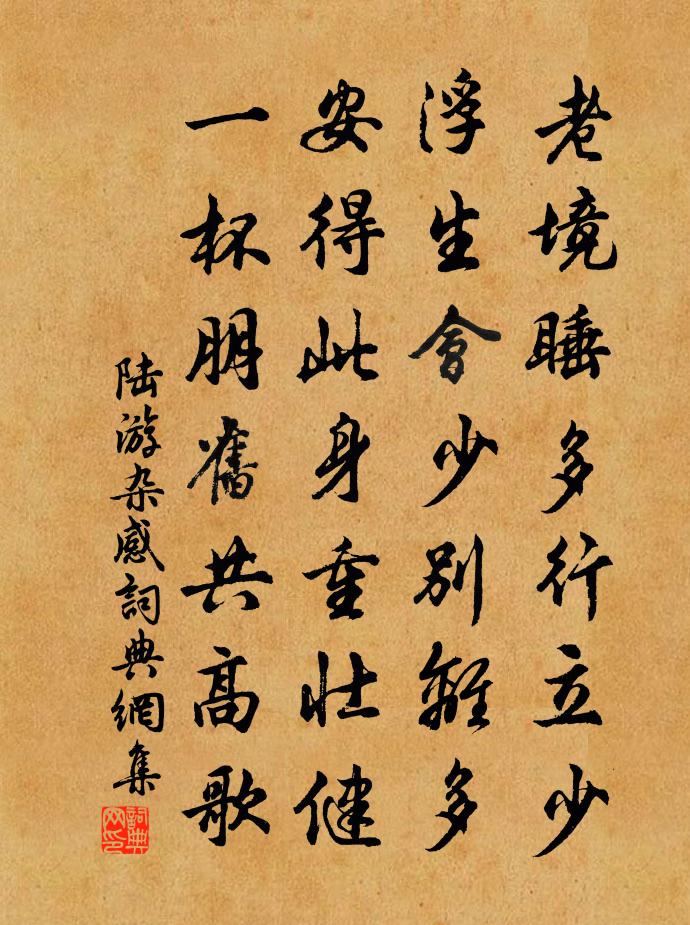 老境睡多行立少
浮生會少別離多
安得此身重壯健
一杯朋舊共高歌
陆游杂感詞典網集
詞典
网印